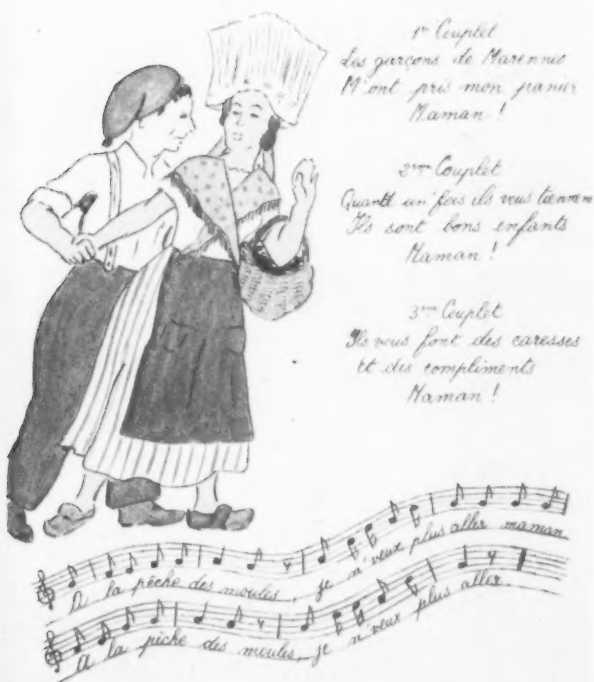 1er Couplet
Les garçons de Marennes
M'ont pris mon panier
Maman !
2me Couplet
Quand un' fois ils vous tiennent
Ils sont bons enfants
Maman !
3me Couplet
Ils vous font des caresses
Et des compliments
Maman !
A la pêche des moules, je n'veux plus aller maman
A la pêche des moules, je n'veux plus aller.